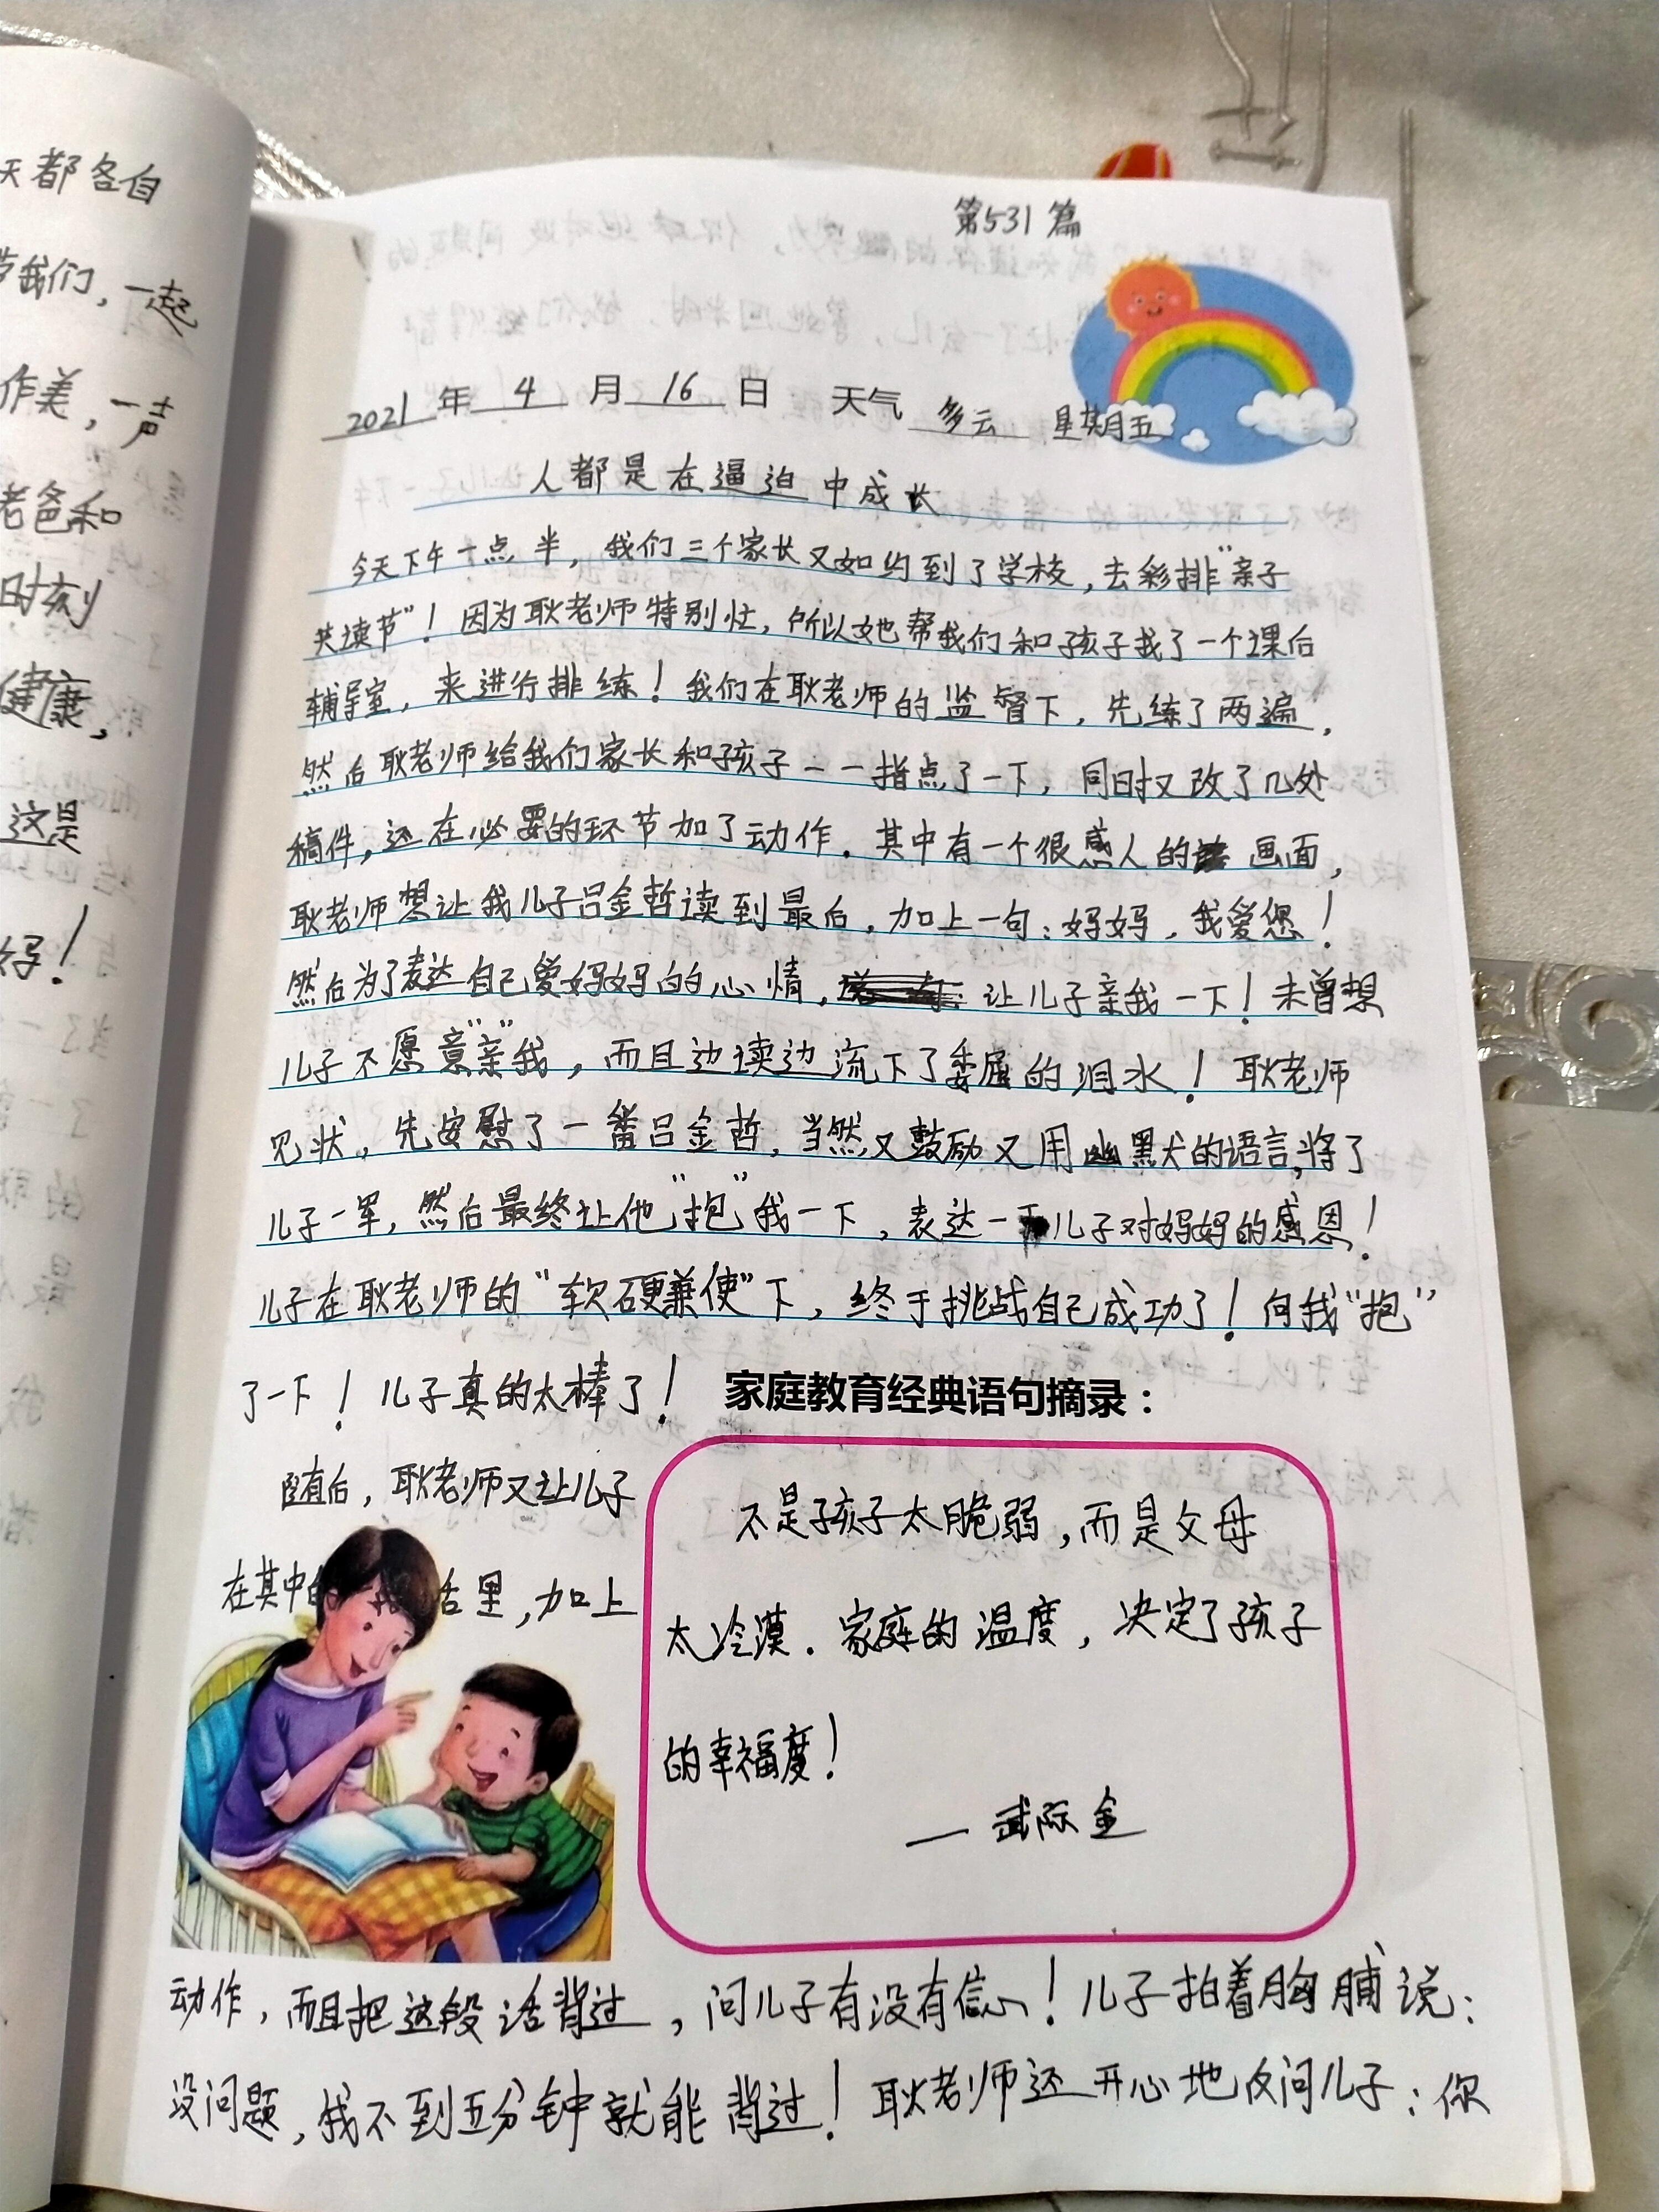 天都各自
我们，一起
作美，一声
老爸和
时刻
健康，
这是
好！
第531篇
2021年4月16日 天气 多云 星期五
人都是在逼迫中成长
今天下午一点半，我们三个家长又如约到了学校，去彩排“亲子
共读节”！因为耿老师特别忙，所以她帮我们和孩子找了一个课后
辅导室，来进行排练！我们在耿老师的监督下，先练了两遍，
然后耿老师给我们家长和孩子一一指点了一下，同时又改了几处
稿件，还在必要的环节加了动作。其中有一个很感人的画面，
耿老师想让我儿子吕金哲读到最后，加上一句：妈妈，我爱您！
然后为了表达自己爱妈妈的心情，让儿子亲我一下！未曾想
儿子不愿意“亲”我，而且边读边流下了委屈的泪水！耿老师
见状，先安慰了一番吕金哲，当然又鼓励又用幽默的语言，将了
儿子一军，然后最终让他“抱”我一下，表达一下儿子对妈妈的感恩！
儿子在耿老师的“软硬兼使”下，终于挑战自己成功了！向我“抱”
了一下！儿子真的太棒了！
随后，耿老师又让儿子
在其中的 话里，加上
家庭教育经典语句摘录：
不是孩子太脆弱，而是父母
太冷漠。家庭的温度，决定了孩子
的幸福度！
—武际金
动作，而且把这段话背过，问儿子有没有信心！儿子拍着胸脯说：
没问题，我不到五分钟就能背过！耿老师还开心地反问儿子：你